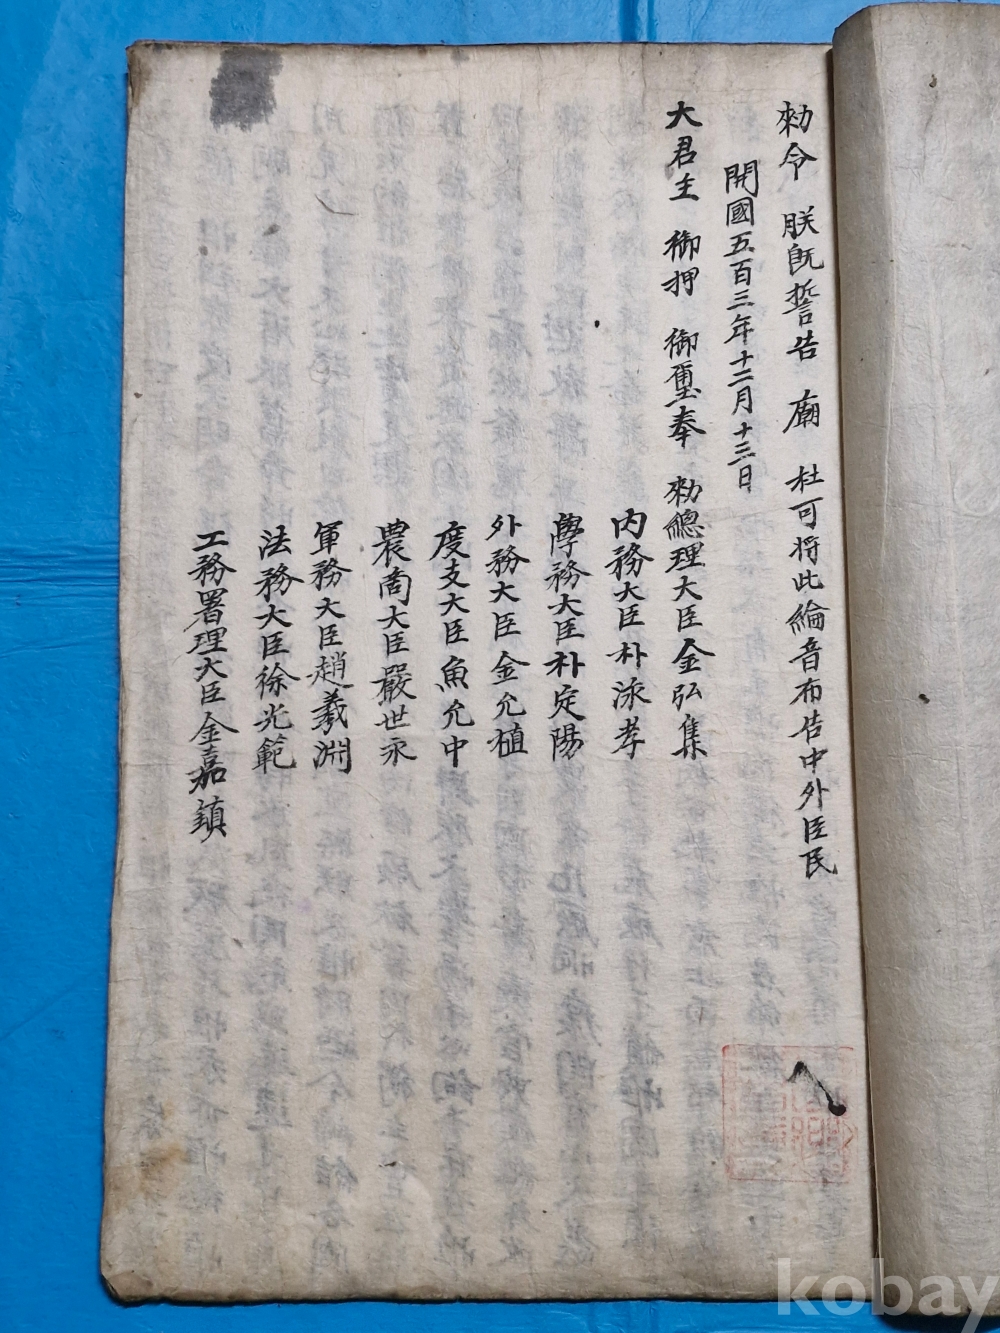 勑令　朕旣誓告　廟　社可将此綸音布告中外臣民
開國五百三年十二月十三日
大君主　御押　御璽奉　勑總理大臣金弘集
內務大臣朴泳孝
學務大臣朴定陽
外務大臣金允植
度支大臣魚允中
農商大臣嚴世永
軍務大臣趙羲淵
法務大臣徐光範
工務署理大臣金嘉鎮
kobay